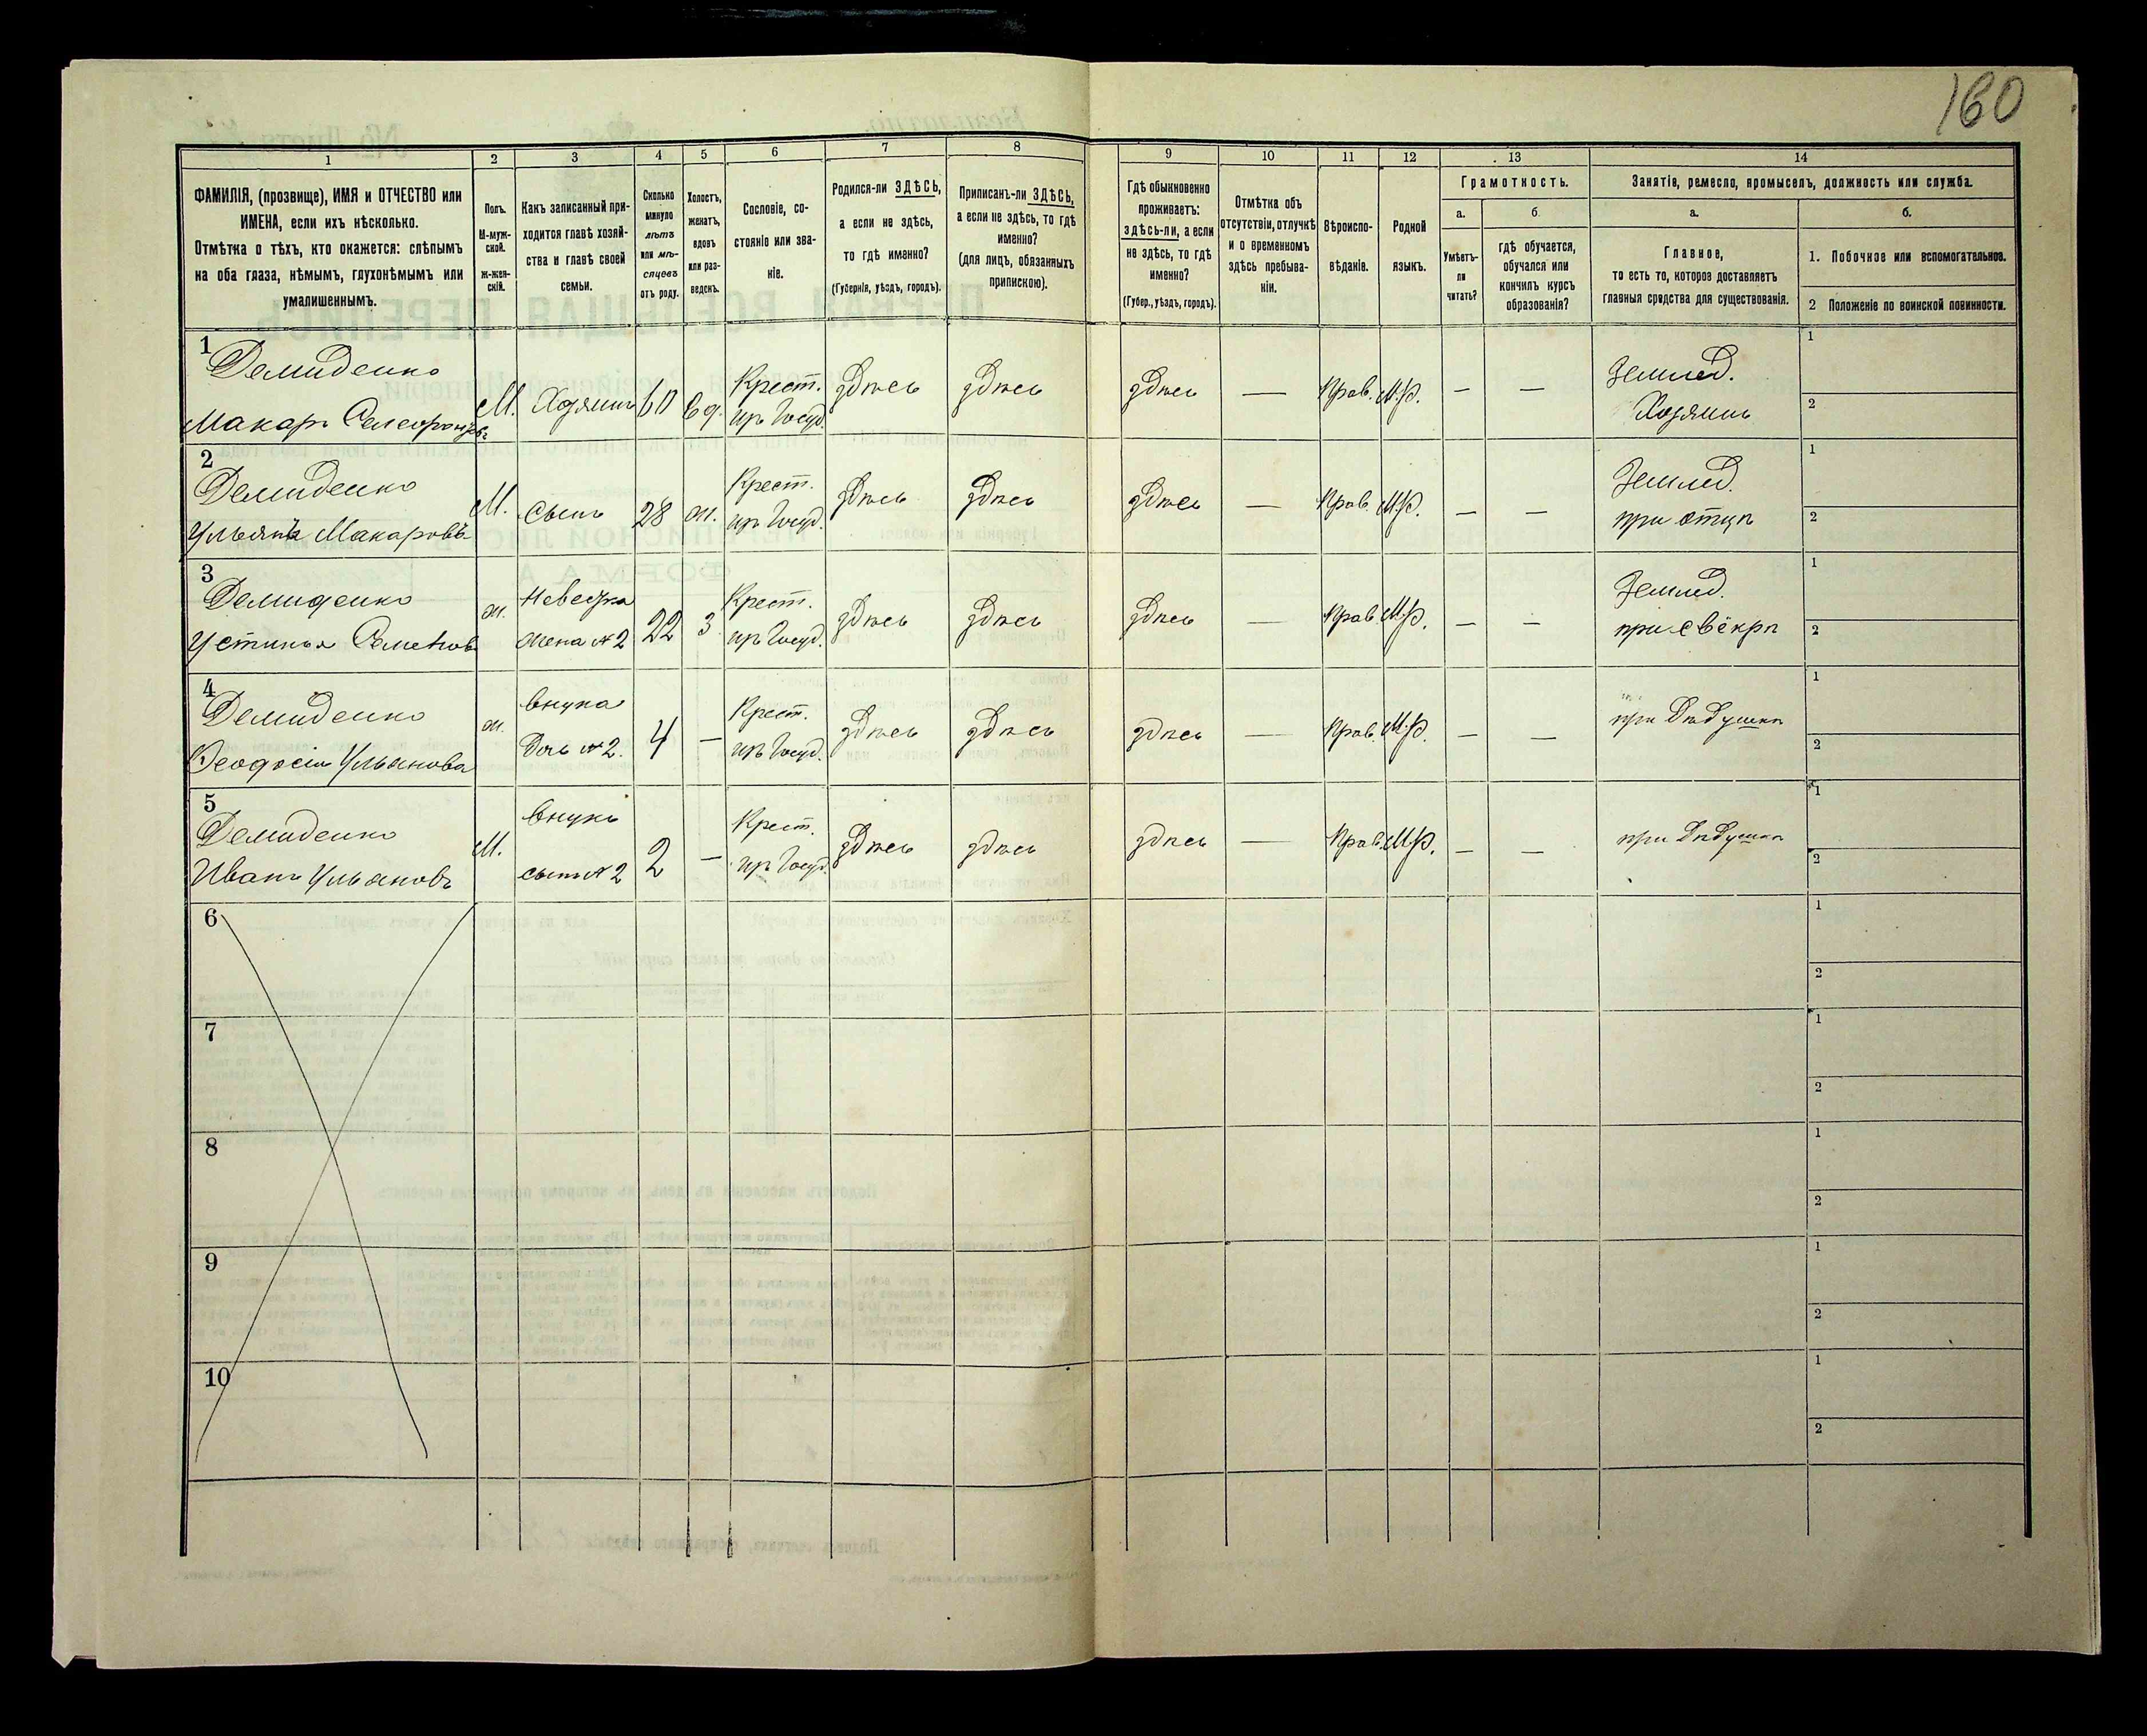 160
1 2 3 4 5 6 7 8 9 10 11 12 13 14
ФАМИЛІЯ, (прозвище), ИМЯ и ОТЧЕСТВО или
ИМЕНА, если ихъ нѣсколько.
Отмѣтка о тѣхъ, кто окажется: слѣпымъ
на оба глаза, нѣмымъ, глухонѣмымъ или
умалишеннымъ.
Полъ.
М-муж-
ской.
Ж-жен-
скій.
Какъ записанный при-
ходится главѣ хозяй-
ства и главѣ своей
семьи.
Сколько
минуло
лѣтъ
или мѣ-
сяцевъ
отъ роду.
Холостъ,
женатъ,
вдовъ
или раз-
веденъ.
Сословіе, со-
стояніе или зва-
ніе.
Родился-ли ЗДѢСЬ,
а если не здѣсь,
то гдѣ именно?
(Губернія, уѣздъ, городъ).
Приписанъ-ли ЗДѢСЬ,
а если не здѣсь, то гдѣ
именно?
(для лицъ, обязанныхъ
припискою).
Гдѣ обыкновенно
проживаетъ:
здѣсь-ли, а если
не здѣсь, то гдѣ
именно?
(Губер., уѣздъ, городъ).
Отмѣтка объ
отсутствіи, отлучкѣ
и о временномъ
здѣсь пребыва-
ніи.
Вѣроиспо-
вѣданіе.
Родной
языкъ.
Грамотность.
а.
Умѣетъ-
ли
читать?
б.
гдѣ обучается,
обучался или
кончилъ курсъ
образованія?
Занятіе, ремесло, промыселъ, должность или служба.
а.
Главное,
то есть то, которое доставляетъ
главныя средства для существованія.
б.
1. Побочное или вспомогательное.
2 Положеніе по воинской повинности.
1
Демиденко
Макаръ
М. Хозяинъ 60 вд.
Крест.
изъ Госуд.
здѣсь здѣсь здѣсь — Прав. М.р. — —
Землед.
Хозяинъ
1
2
2
Демиденко
Ульянъ Макаровъ
М. Сынъ 28 ж.
Крест.
изъ Госуд.
здѣсь здѣсь здѣсь — Прав. М.р. — —
Землед.
при отцѣ
1
2
3
Демиденко
Устинья Семенов
ж.
Невестка
жена № 2
22 З
Крест.
изъ Госуд.
здѣсь здѣсь здѣсь — Прав. М.р. — —
Землед.
при свёкрѣ
1
2
4
Демиденко
Ѳеодосія Ульянова
ж.
внука
Дочь № 2.
4 —
Крест.
изъ Госуд.
здѣсь здѣсь здѣсь — Прав. М.р. — —
при Дѣдушкѣ
1
2
5
Демиденко
Иванъ Ульяновъ
М.
внукъ
сынъ № 2
2 —
Крест.
изъ Госуд.
здѣсь здѣсь здѣсь — Прав. М.р. — —
при Дѣдушкѣ
1
2
6
1
2
7
1
2
8
1
2
9
1
2
10
1
2